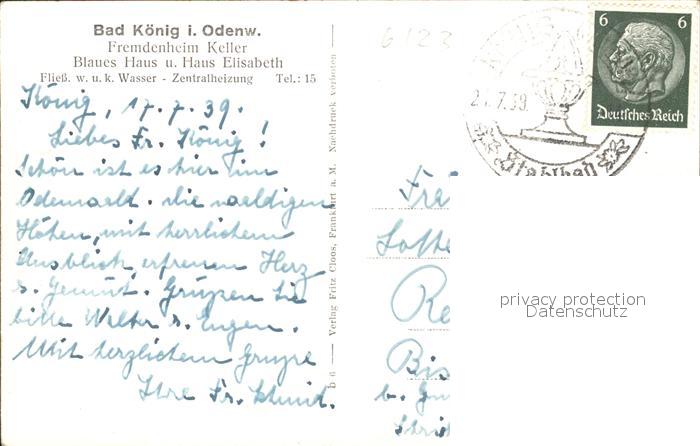 Bad König i. Odenw.
Fremdenheim Keller
Blaues Haus u. Haus Elisabeth
Fließ. w. u. k. Wasser - Zentralheizung Tel.: 15
König, 17.7.39.
Liebes Frl. König!
Schön ist es hier im
Odenwald. Die waldigen
Höhen, mit herrlichem
Ausblick, erfreuen Herz
u. Gemüt. Grüßen Sie
bitte Walter u. Eugen.
Mit herzlichem Grusse
Ihre Fr. Schmid.
b 6 — Verlag Fritz Cloos, Frankfurt a. M. Nachdruck verboten —
6123
7.39.
Stahlbad
6 6
Deutsches Reich
Lotte
Re
Bis
b.
privacy protection
Datenschutz